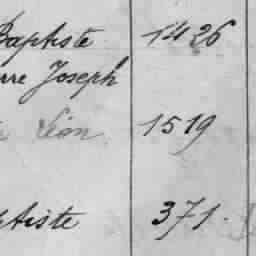 Baptiste 1426
rre Joseph
Léon 1519
ptiste 371.